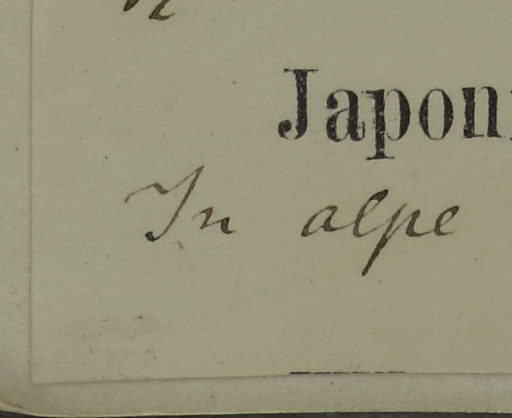 Japon
In alpe